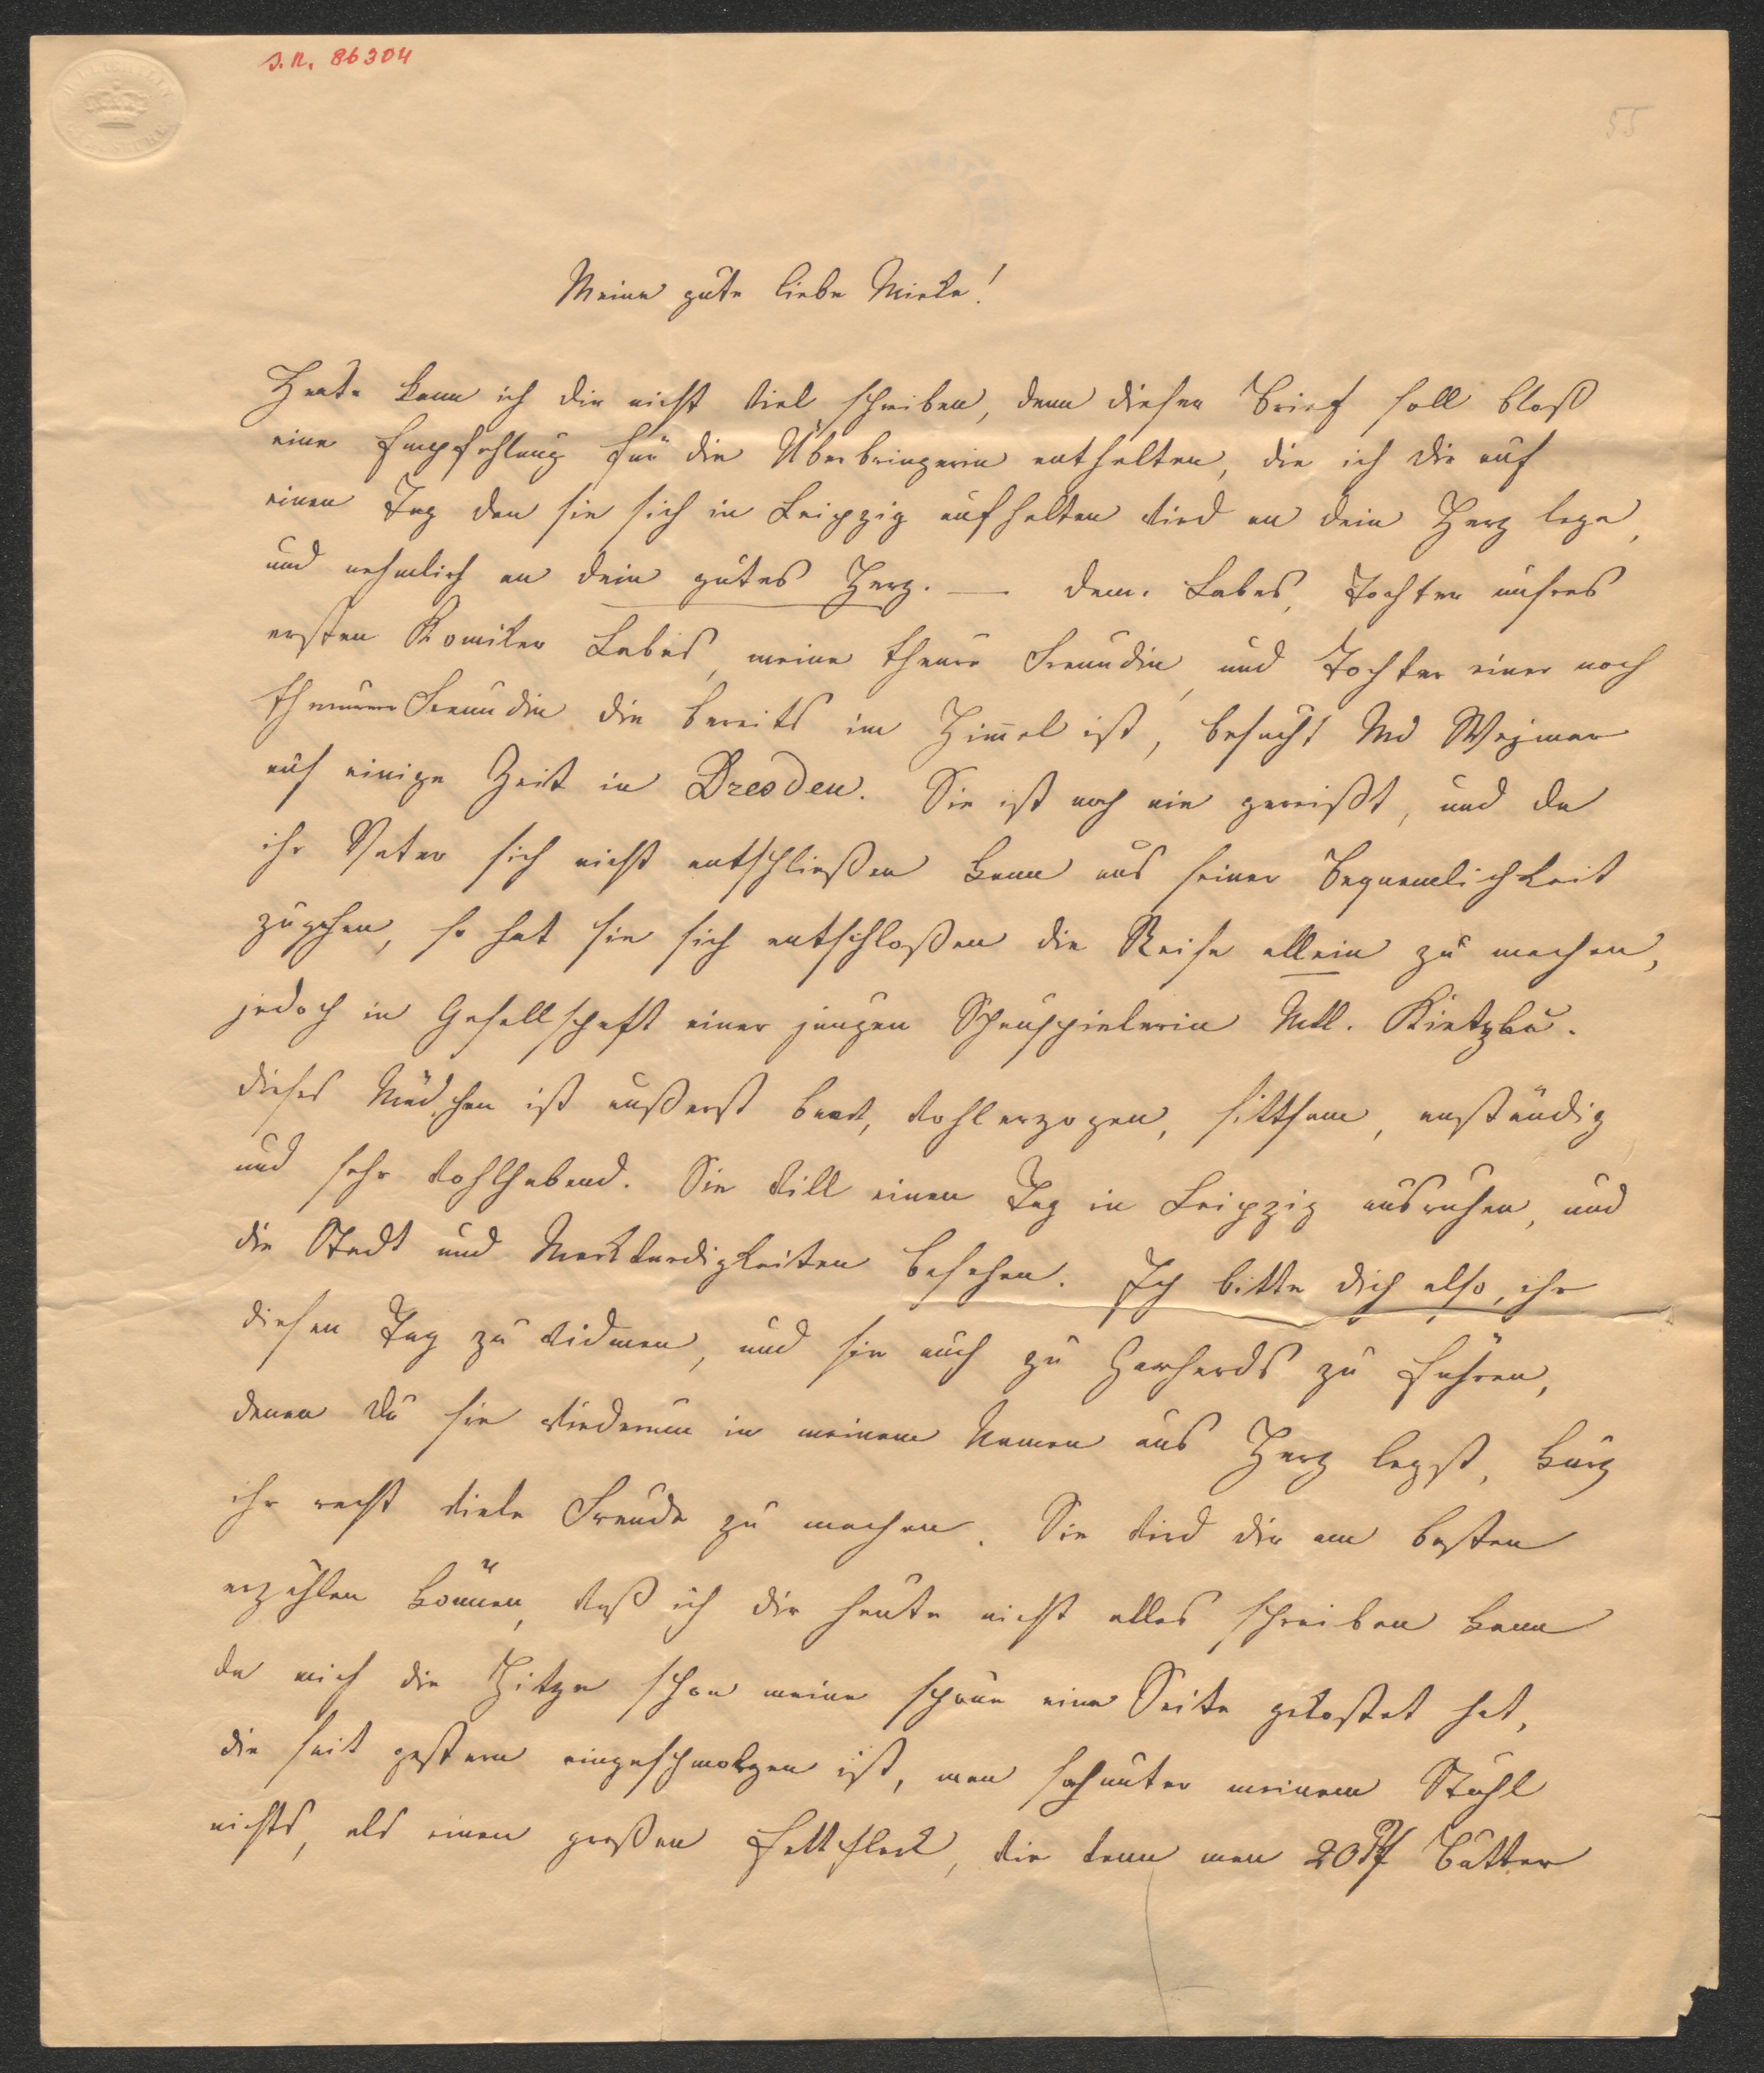 J.N. 86304
55
Meine gute liebe Mieke!
Heute kann ich dir nicht viel schreiben, denn dieser Brief soll bloß
eine Empfehlung für die Überbringerin enthalten, die ich dir auf
einen Tag den sie sich in Leipzig aufhalten wird an dein Herz lege,
und nehmlich an dein gutes Herz. — Dem. Labes, Tochter unsres
ersten Komiker Labes, meine theure Freundin, und Tochter einer noch
theurern Freundin die bereits im Himel ist, besucht Md Weimar
auf einige Zeit in Dresden. Sie ist noch nie gereißt, und da
ihr Vater sich nicht entschließen kann aus seiner Bequemlichkeit
zugehen, so hat sie sich entschloßen die Reise allein zu machen,
jedoch in Gesellschaft einer jungen Schauspielerin Mll.
dieses Mädchen ist äußerst brav, wohlerzogen, sittsam, anständig
und sehr wohlhabend. Sie will einen Tag in Leipzig ausruhen, und
die Stadt und Merkwurdigkeiten besehen. Ich bitte dich also, ihr
diesen Tag zu widmen, und sie auch zu Gerhards zu führen,
denen du sie wiederum in meinem Namen ans Herz legst, kurz
ihr recht viele Freude zu machen. Sie wird dir am besten
erzählen könen, daß ich dir heute nicht alles schreiben kann
da mich die Hitze schon meine schöne eine Seite gekostet hat,
die seit gestern eingeschmolzen ist, man sah unter meinem Stuhl
nichts, als einen großen Fettfleck, wie wenn man 20 ℔ Butter